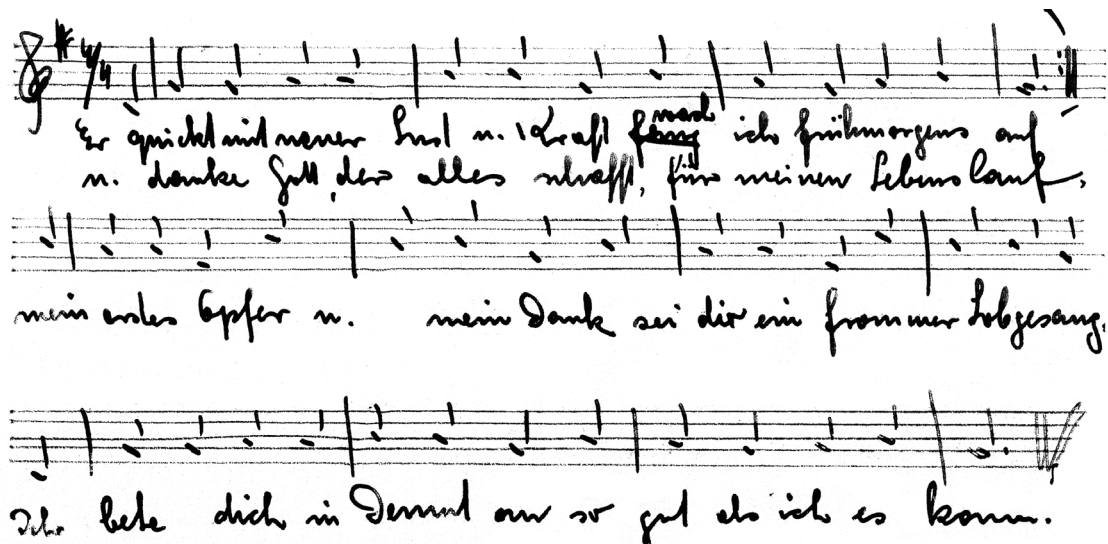 4/4
Er quickt mit neuer Lust u. Kraft wach ich frühmorgens auf
u. danke Gott, der alles schafft, für meinen Lebenslauf,
mein erstes Opfer u. mein Dank sei dir ein frommer Lobgesang,
Ich bete dich in Demut an so gut als ich es kann.